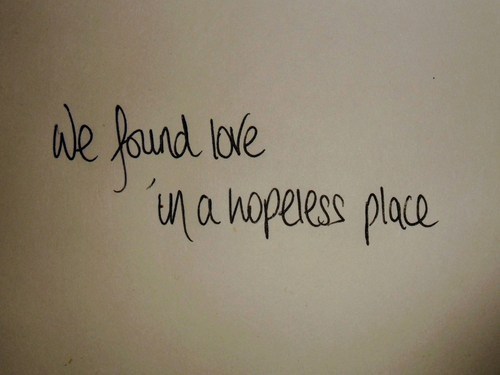 We found love
in a hopeless place